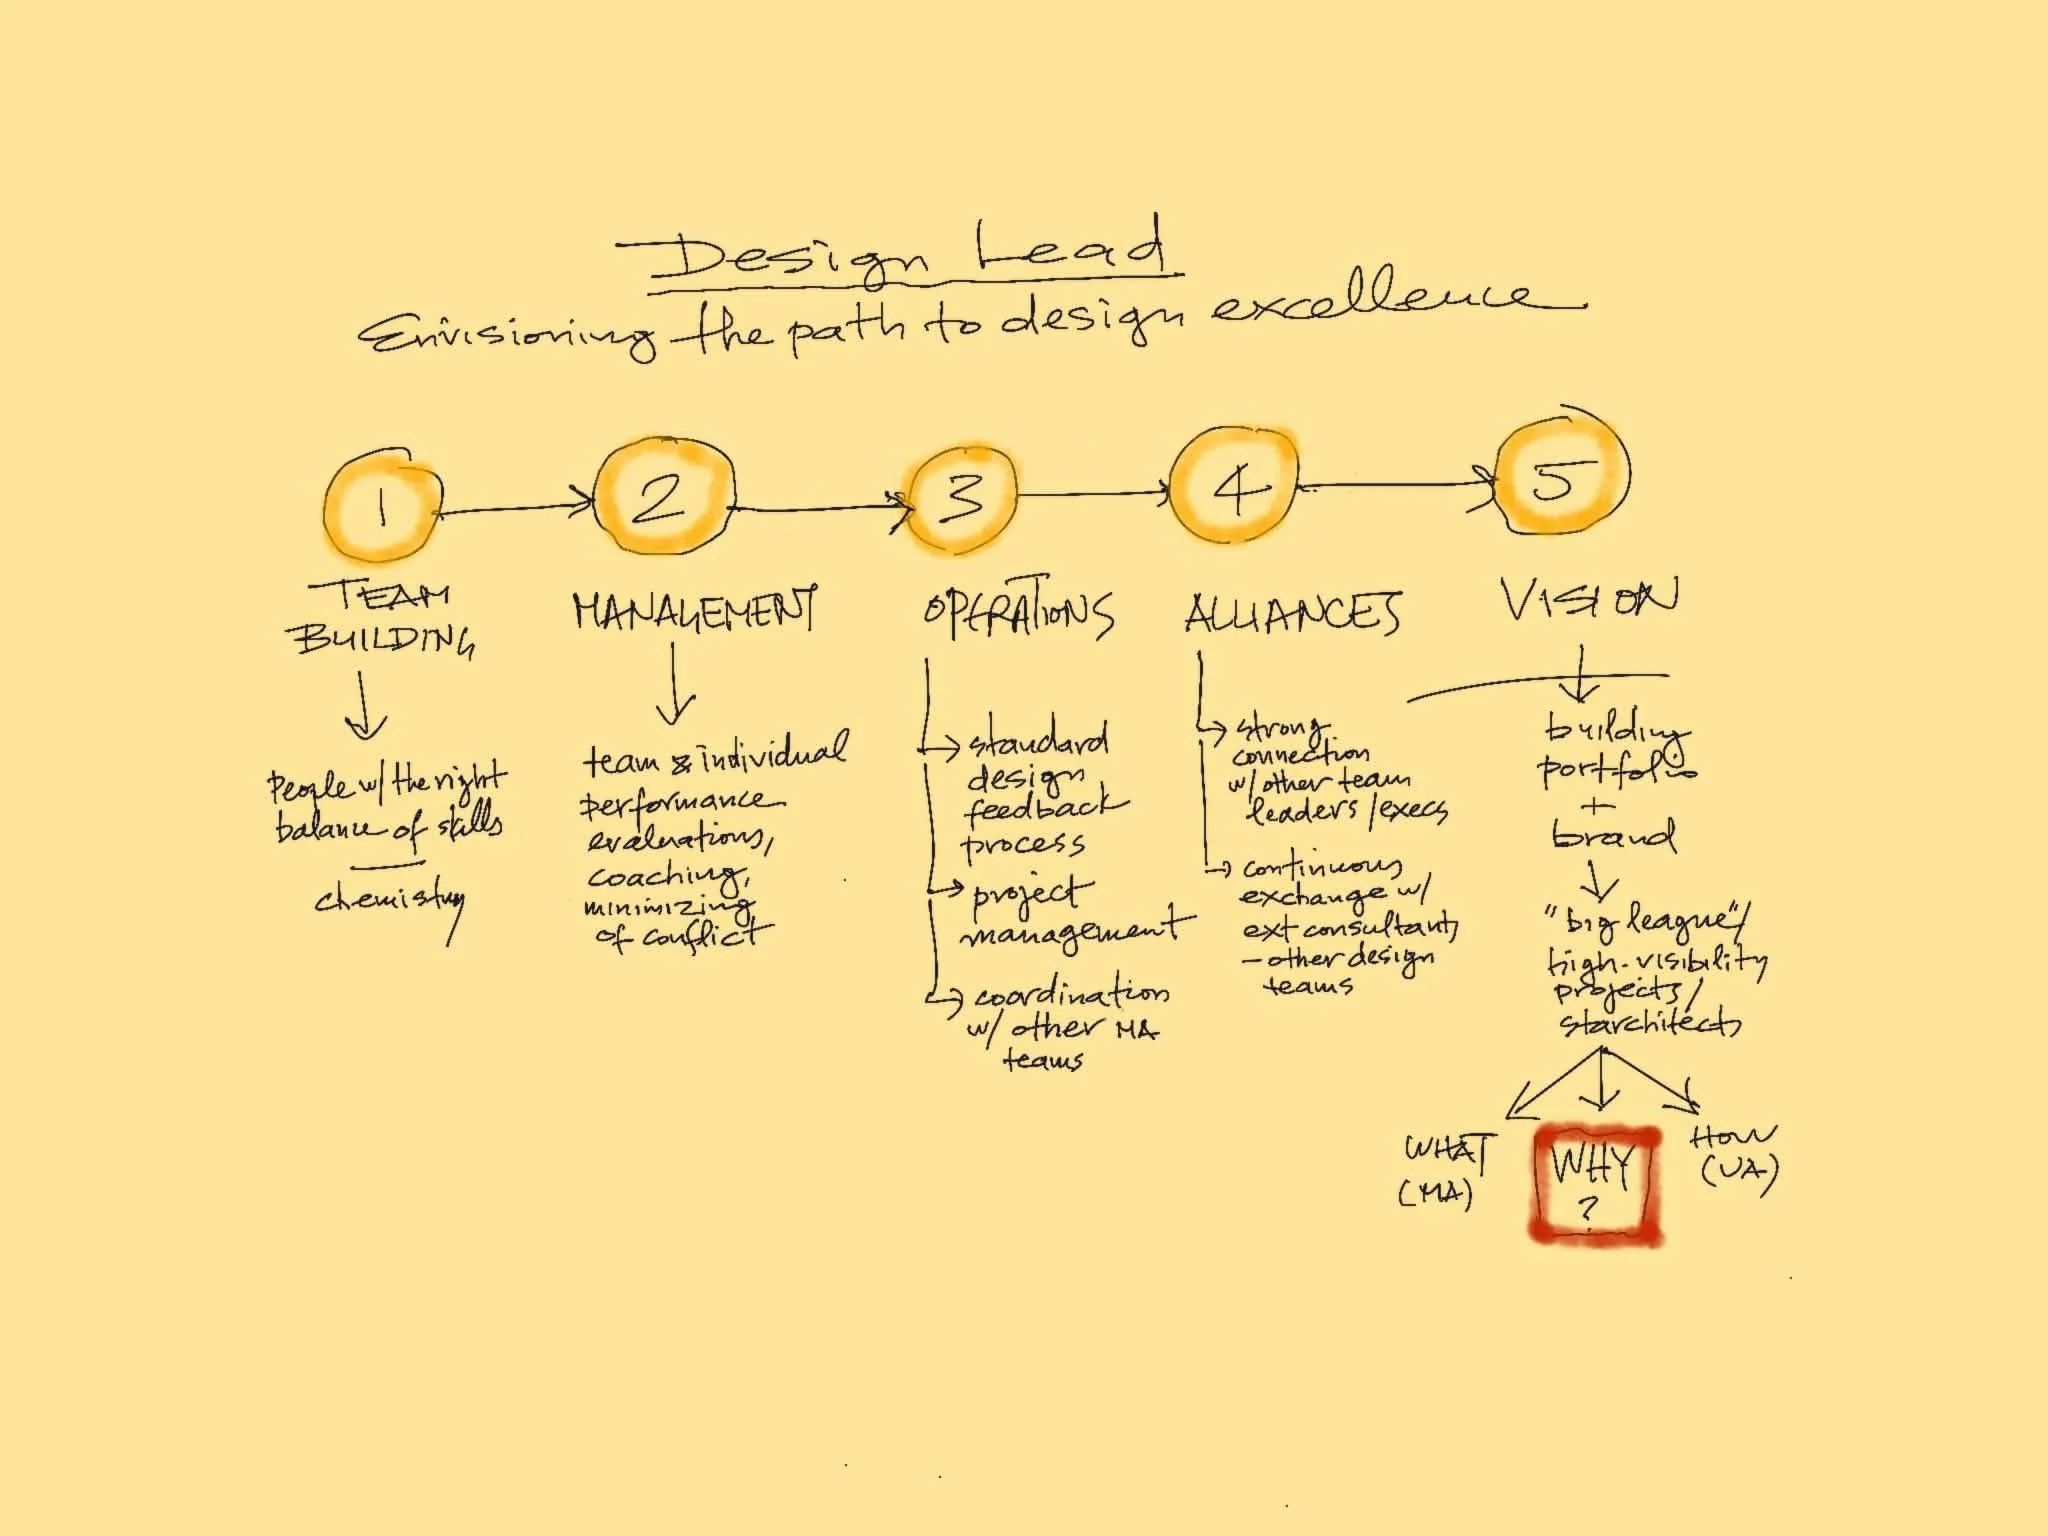 Design Lead
Envisioning the path to design excellence
1
2
3
4
5
TEAM
BUILDING
People w/ the right
balance of skills
chemistry
MANAGEMENT
team & individual
performance
evaluations,
coaching,
minimizing
of conflict
OPERATIONS
standard
design
feedback
process
project
management
coordination
w/ other MA
teams
ALLIANCES
strong
connection
w/ other team
leaders / execs
continuous
exchange w/
ext consultants
- other design
teams
VISION
building
portfolio
+
brand
"big league"/
high-visibility
projects/
starchitects
WHAT
(MA)
WHY
?
HOW
(UA)